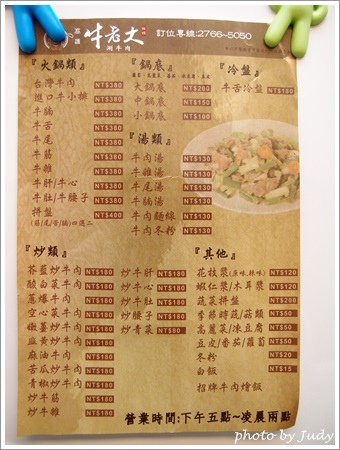 高雄 牛老大 涮牛肉
訂位專線:2766-5050
『火鍋類』
台灣牛肉 NT$380
進口牛小排 NT$380
牛腩 NT$380
牛舌 NT$380
牛尾 NT$380
牛筋 NT$380
牛雜 NT$380
牛肝/牛心 NT$380
牛肚/牛腰子 NT$380
拼盤 NT$400
『鍋底』
火鍋底 NT$200
中鍋底 NT$150
小鍋底 NT$100
『冷盤』
牛舌冷盤 NT$180
『湯類』
牛肉湯 NT$130
牛雜湯 NT$130
牛尾湯 NT$130
牛腩湯 NT$130
牛肉麵線 NT$130
牛肉冬粉 NT$130
『炒類』
芥藍炒牛肉 NT$180
酸白菜牛肉 NT$180
蔥爆牛肉 NT$180
空心菜牛肉 NT$180
嫩薑炒牛肉 NT$180
韭黃炒牛肉 NT$180
麻油牛肉 NT$180
苦瓜炒牛肉 NT$180
青椒炒牛肉 NT$180
炒牛筋 NT$180
炒牛雜 NT$180
炒牛肝 NT$180
炒牛心 NT$180
炒牛肚 NT$180
炒腰子 NT$180
炒青菜 NT$80
『其他』
花枝漿(原味.辣味) NT$120
蝦仁漿/木耳漿 NT$120
蔬菜拼盤 NT$200
季節時蔬/菇類
高麗菜/凍豆腐
豆皮/番茄/蘿蔔 NT$50
冬粉 NT$20
白飯 NT$15
招牌牛肉燴飯
營業時間:下午五點~凌晨兩點
photo by Judy